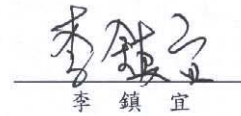 李鎮宜
李鎮宜